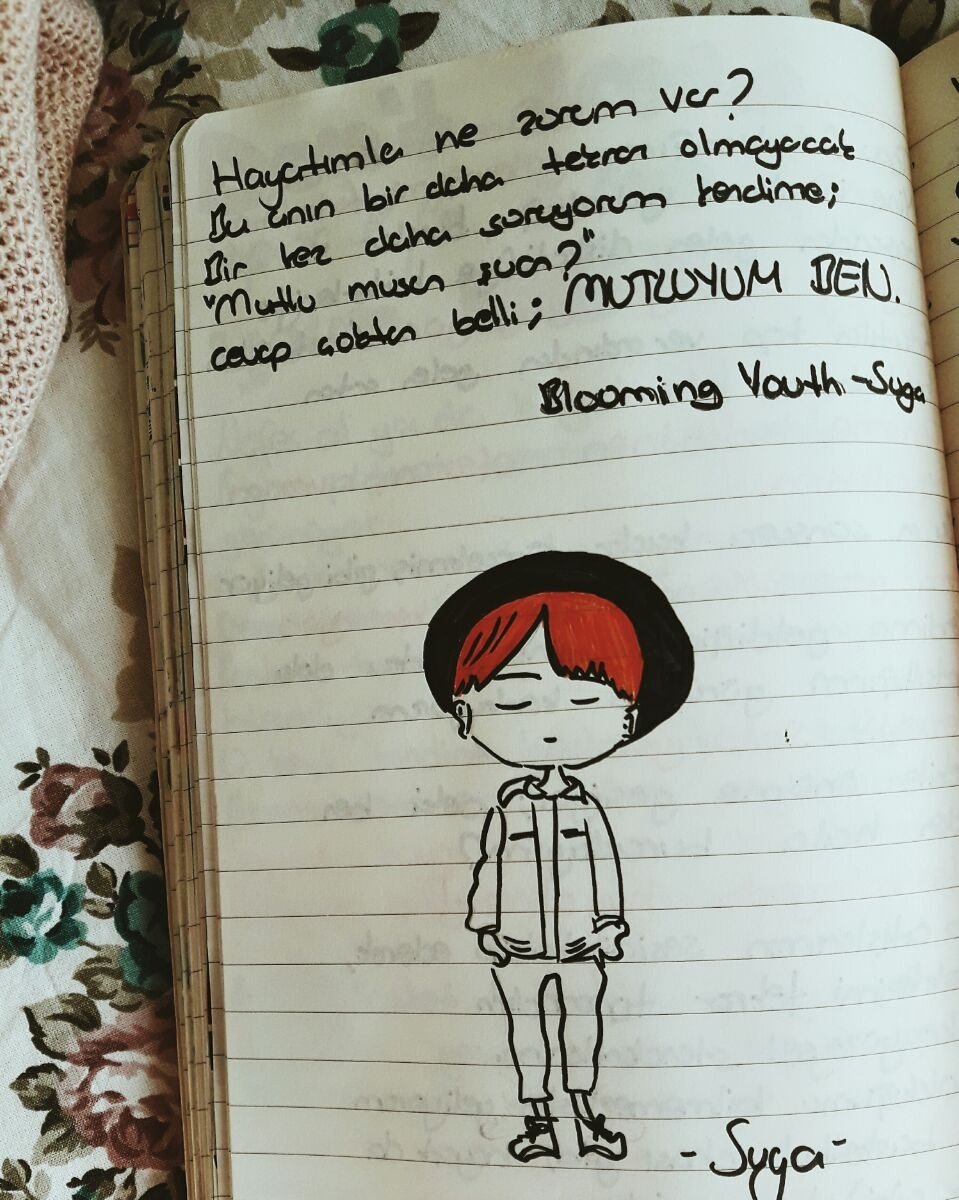 Hayatımla ne zorum var?
Bu anın bir daha tekrar olmayacak
Bir kez daha soruyorum kendime;
"Mutlu musun şuan?"
cevap çoktan belli; MUTLUYUM BEN.
Blooming Youth -Suga
-Suga-